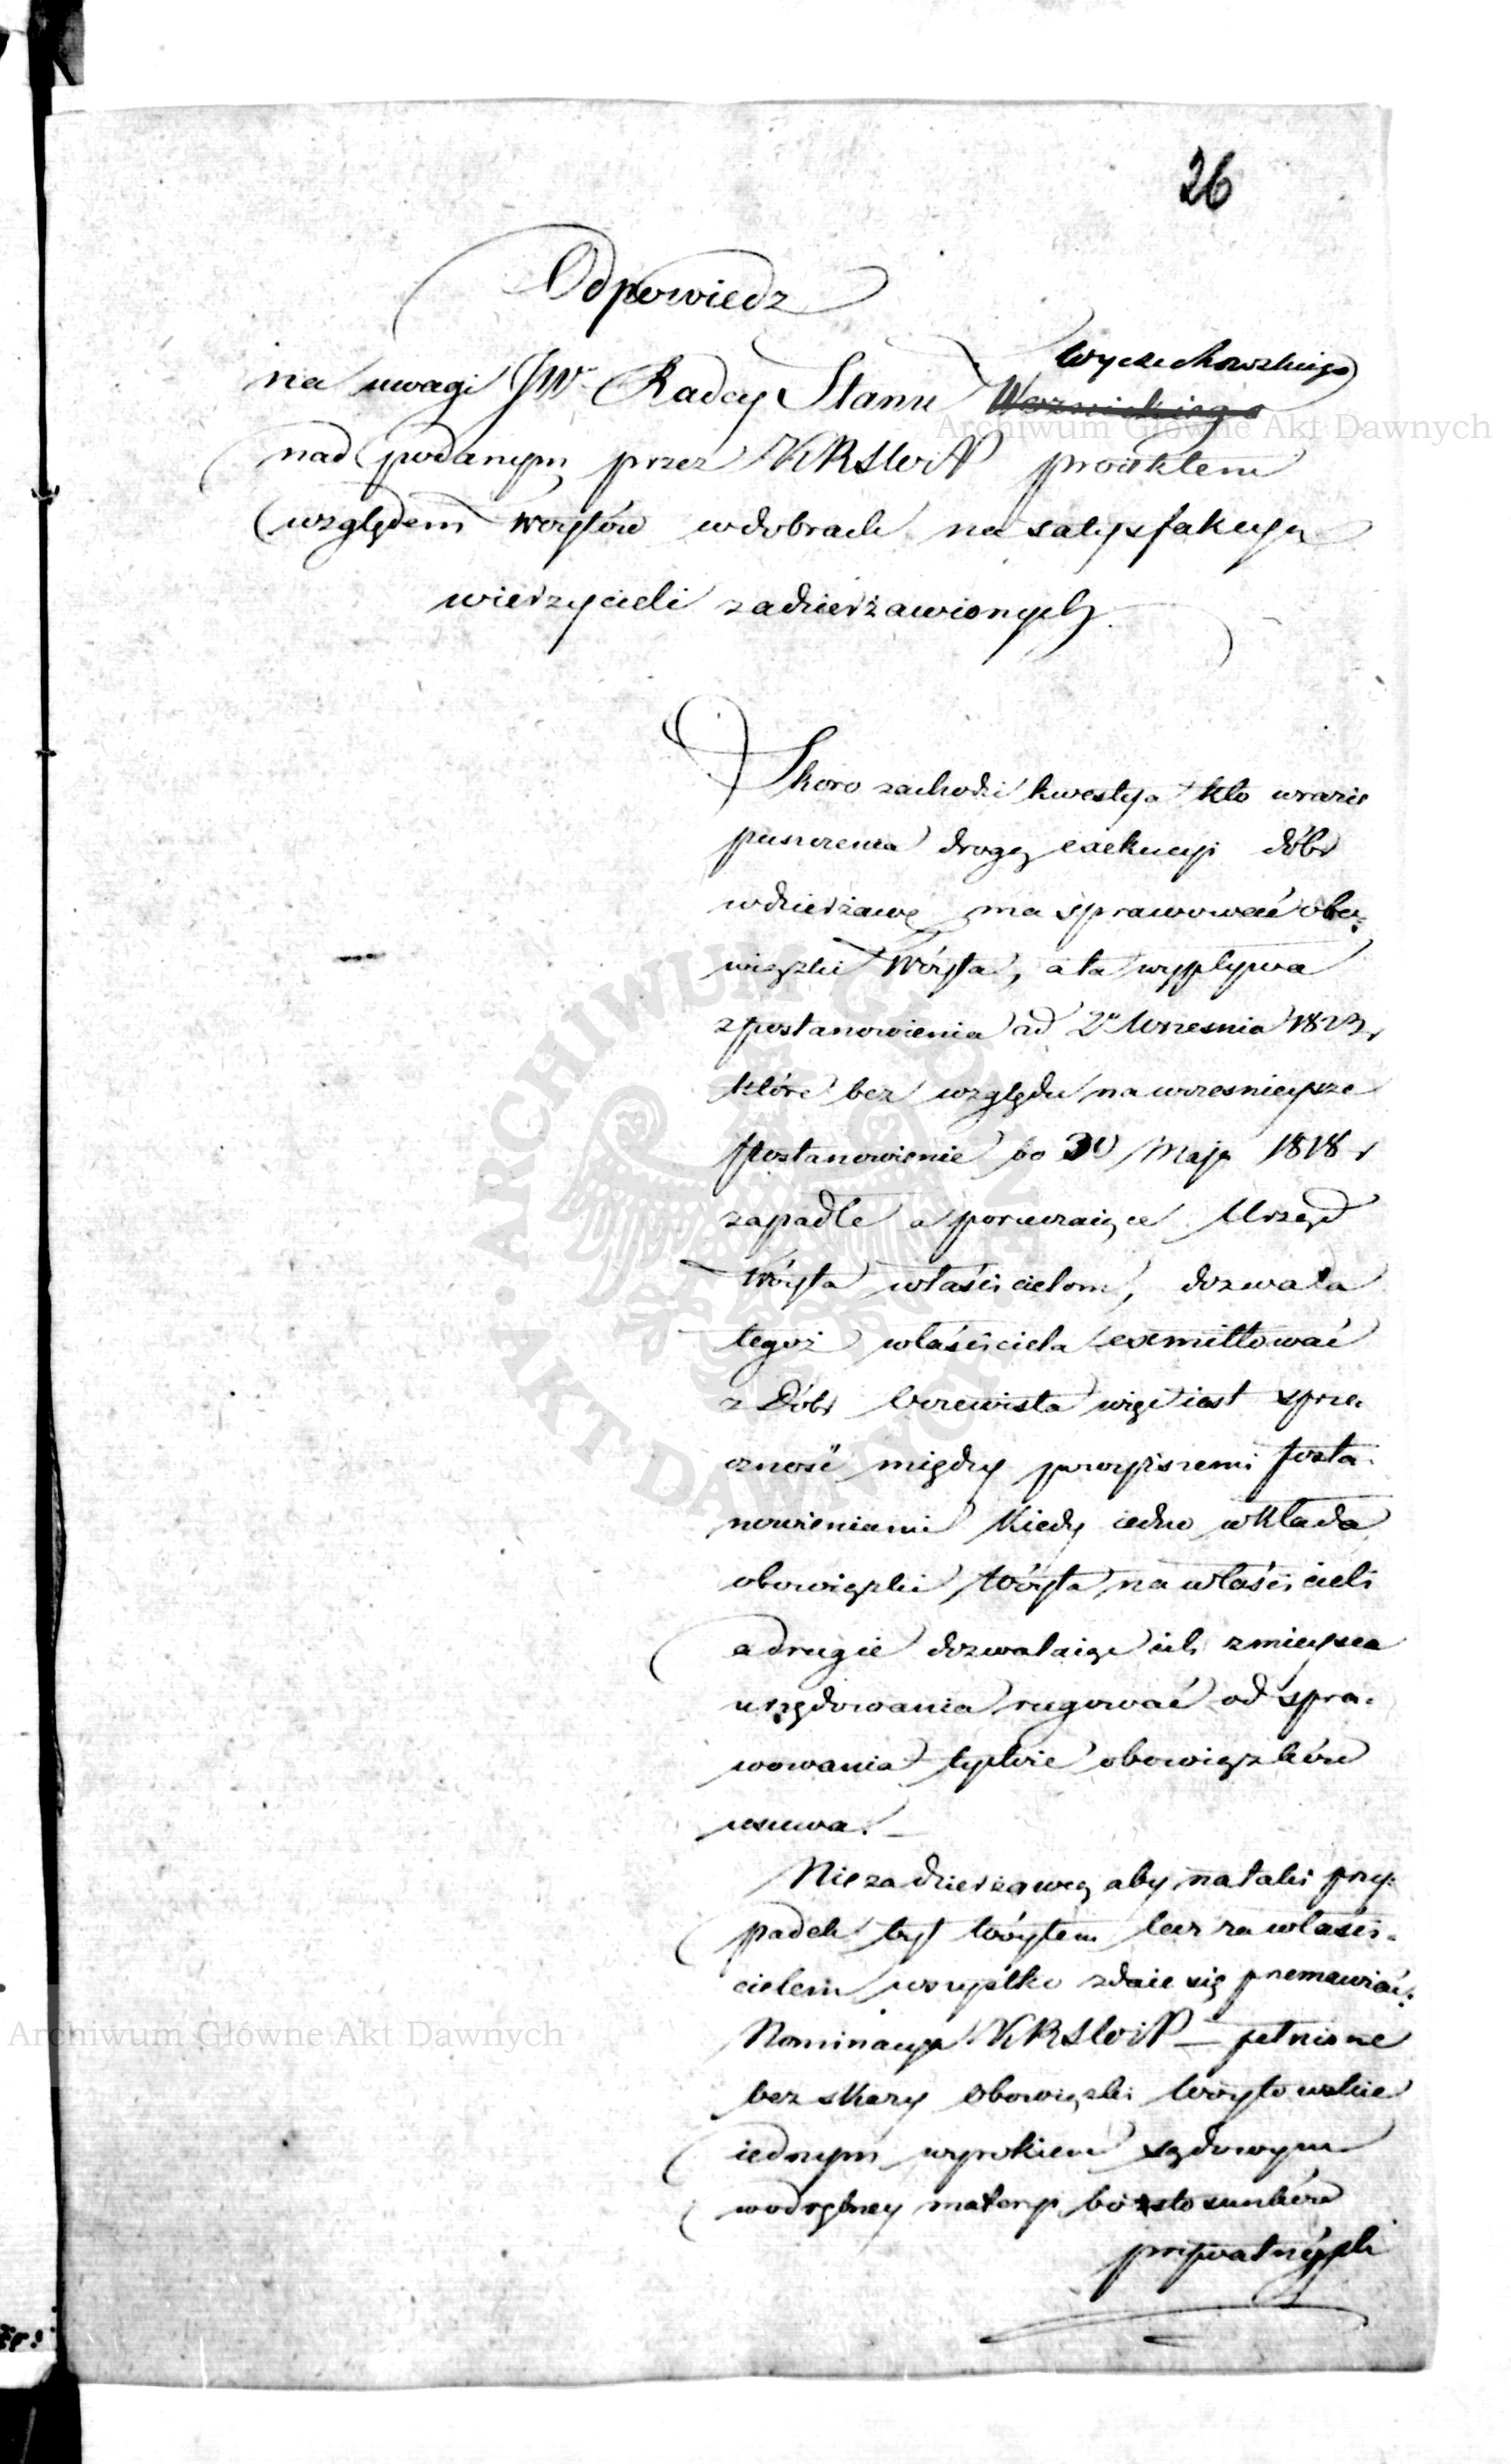 26
Odpowiedz
Wyczechowskiego
na uwagi JW Radcy Stanu Woznickiego
nad podanym przez KRSWiP proiektem
względem Woytów w dobrach na satysfakcyą
wierzycieli zadzierżawionych.
Skoro zachodzi kwestya kto w razie
puszczenia drogą exekucyi dóbr
w dzierżawę ma sprawować obo-
wiązki Wóyta, a ta wypływa
z postanowienia od 2° Wrzesnia 1823 r
które bez względu na wczesnieysze
postanowienie bo 30 Maja 1818 r
zapadłe a poruczaiące Urząd
Wóyta właścicielom, dozwala
tegoż właściciela exmittować
z Dóbr Oczewista więc iest sprze-
czność między powyższemi posta-
nowieniami kiedy iedno wkłada
obowiązki Wóyta na właścicieli
a drugie dozwalaiąc ich z mieysca
urzędowania rugować od spra-
wowania tychże obowiązków
usuwa. _
Nie za dzierżawcą aby na taki przy-
padek był Wóytem lecz za właści-
cielem wszystko zdaie się przemawiać:
Nominacya KRSWiP – pełnione
bez skazy obowiązki Wóytowskie
iednym wyrokiem sądowym
w odrębney materyi bo z stosunków
prywatnych
Archiwum Główne Akt Dawnych
Archiwum Główne Akt Dawnych
ARCHIWUM GŁÓWNE AKT DAWNYCH